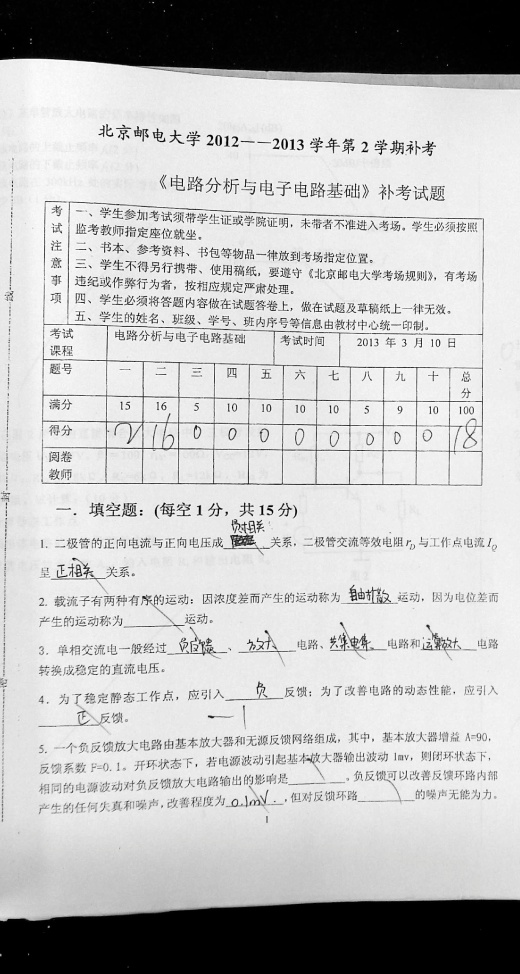 北京邮电大学2012——2013学年第2学期补考
《电路分析与电子电路基础》补考试题
考试注意事项
一、学生参加考试须带学生证或学院证明，未带者不准进入考场。学生必须按照
监考教师指定座位就坐。
二、书本、参考资料、书包等物品一律放到考场指定位置。
三、学生不得另行携带、使用稿纸，要遵守《北京邮电大学考场规则》，有考场
违纪或作弊行为者，按相应规定严肃处理。
四、学生必须将答题内容做在试题答卷上，做在试题及草稿纸上一律无效。
五、学生的姓名、班级、学号、班内序号等信息由教材中心统一印制。
考试课程 电路分析与电子电路基础 考试时间 2013 年 3 月 10 日
题号 一 二 三 四 五 六 七 八 九 十 总分
满分 15 16 5 10 10 10 10 5 9 10 100
得分 2 16 0 0 0 0 0 0 0 0 18
阅卷教师
一．填空题：(每空1分，共15分)
负相关
1. 二极管的正向电流与正向电压成 关系，二极管交流等效电阻rD与工作点电流IQ
呈 正相关 关系。
2. 载流子有两种有序的运动：因浓度差而产生的运动称为 自由扩散 运动，因为电位差而
产生的运动称为 运动。
3．单相交流电一般经过 负反馈 、 放大 电路、共集电集 电路和 运算放大 电路
转换成稳定的直流电压。
4．为了稳定静态工作点，应引入 负 反馈；为了改善电路的动态性能，应引入
正 反馈。 -1
5．一个负反馈放大电路由基本放大器和无源反馈网络组成，其中，基本放大器增益 A=90，
反馈系数 F=0.1。开环状态下，若电源波动引起基本放大器输出波动 1mv，则闭环状态下，
相同的电源波动对负反馈放大电路输出的影响是 。负反馈可以改善反馈环路内部
产生的任何失真和噪声，改善程度为 0.1mV. ，但对反馈环路 的噪声无能为力。
1